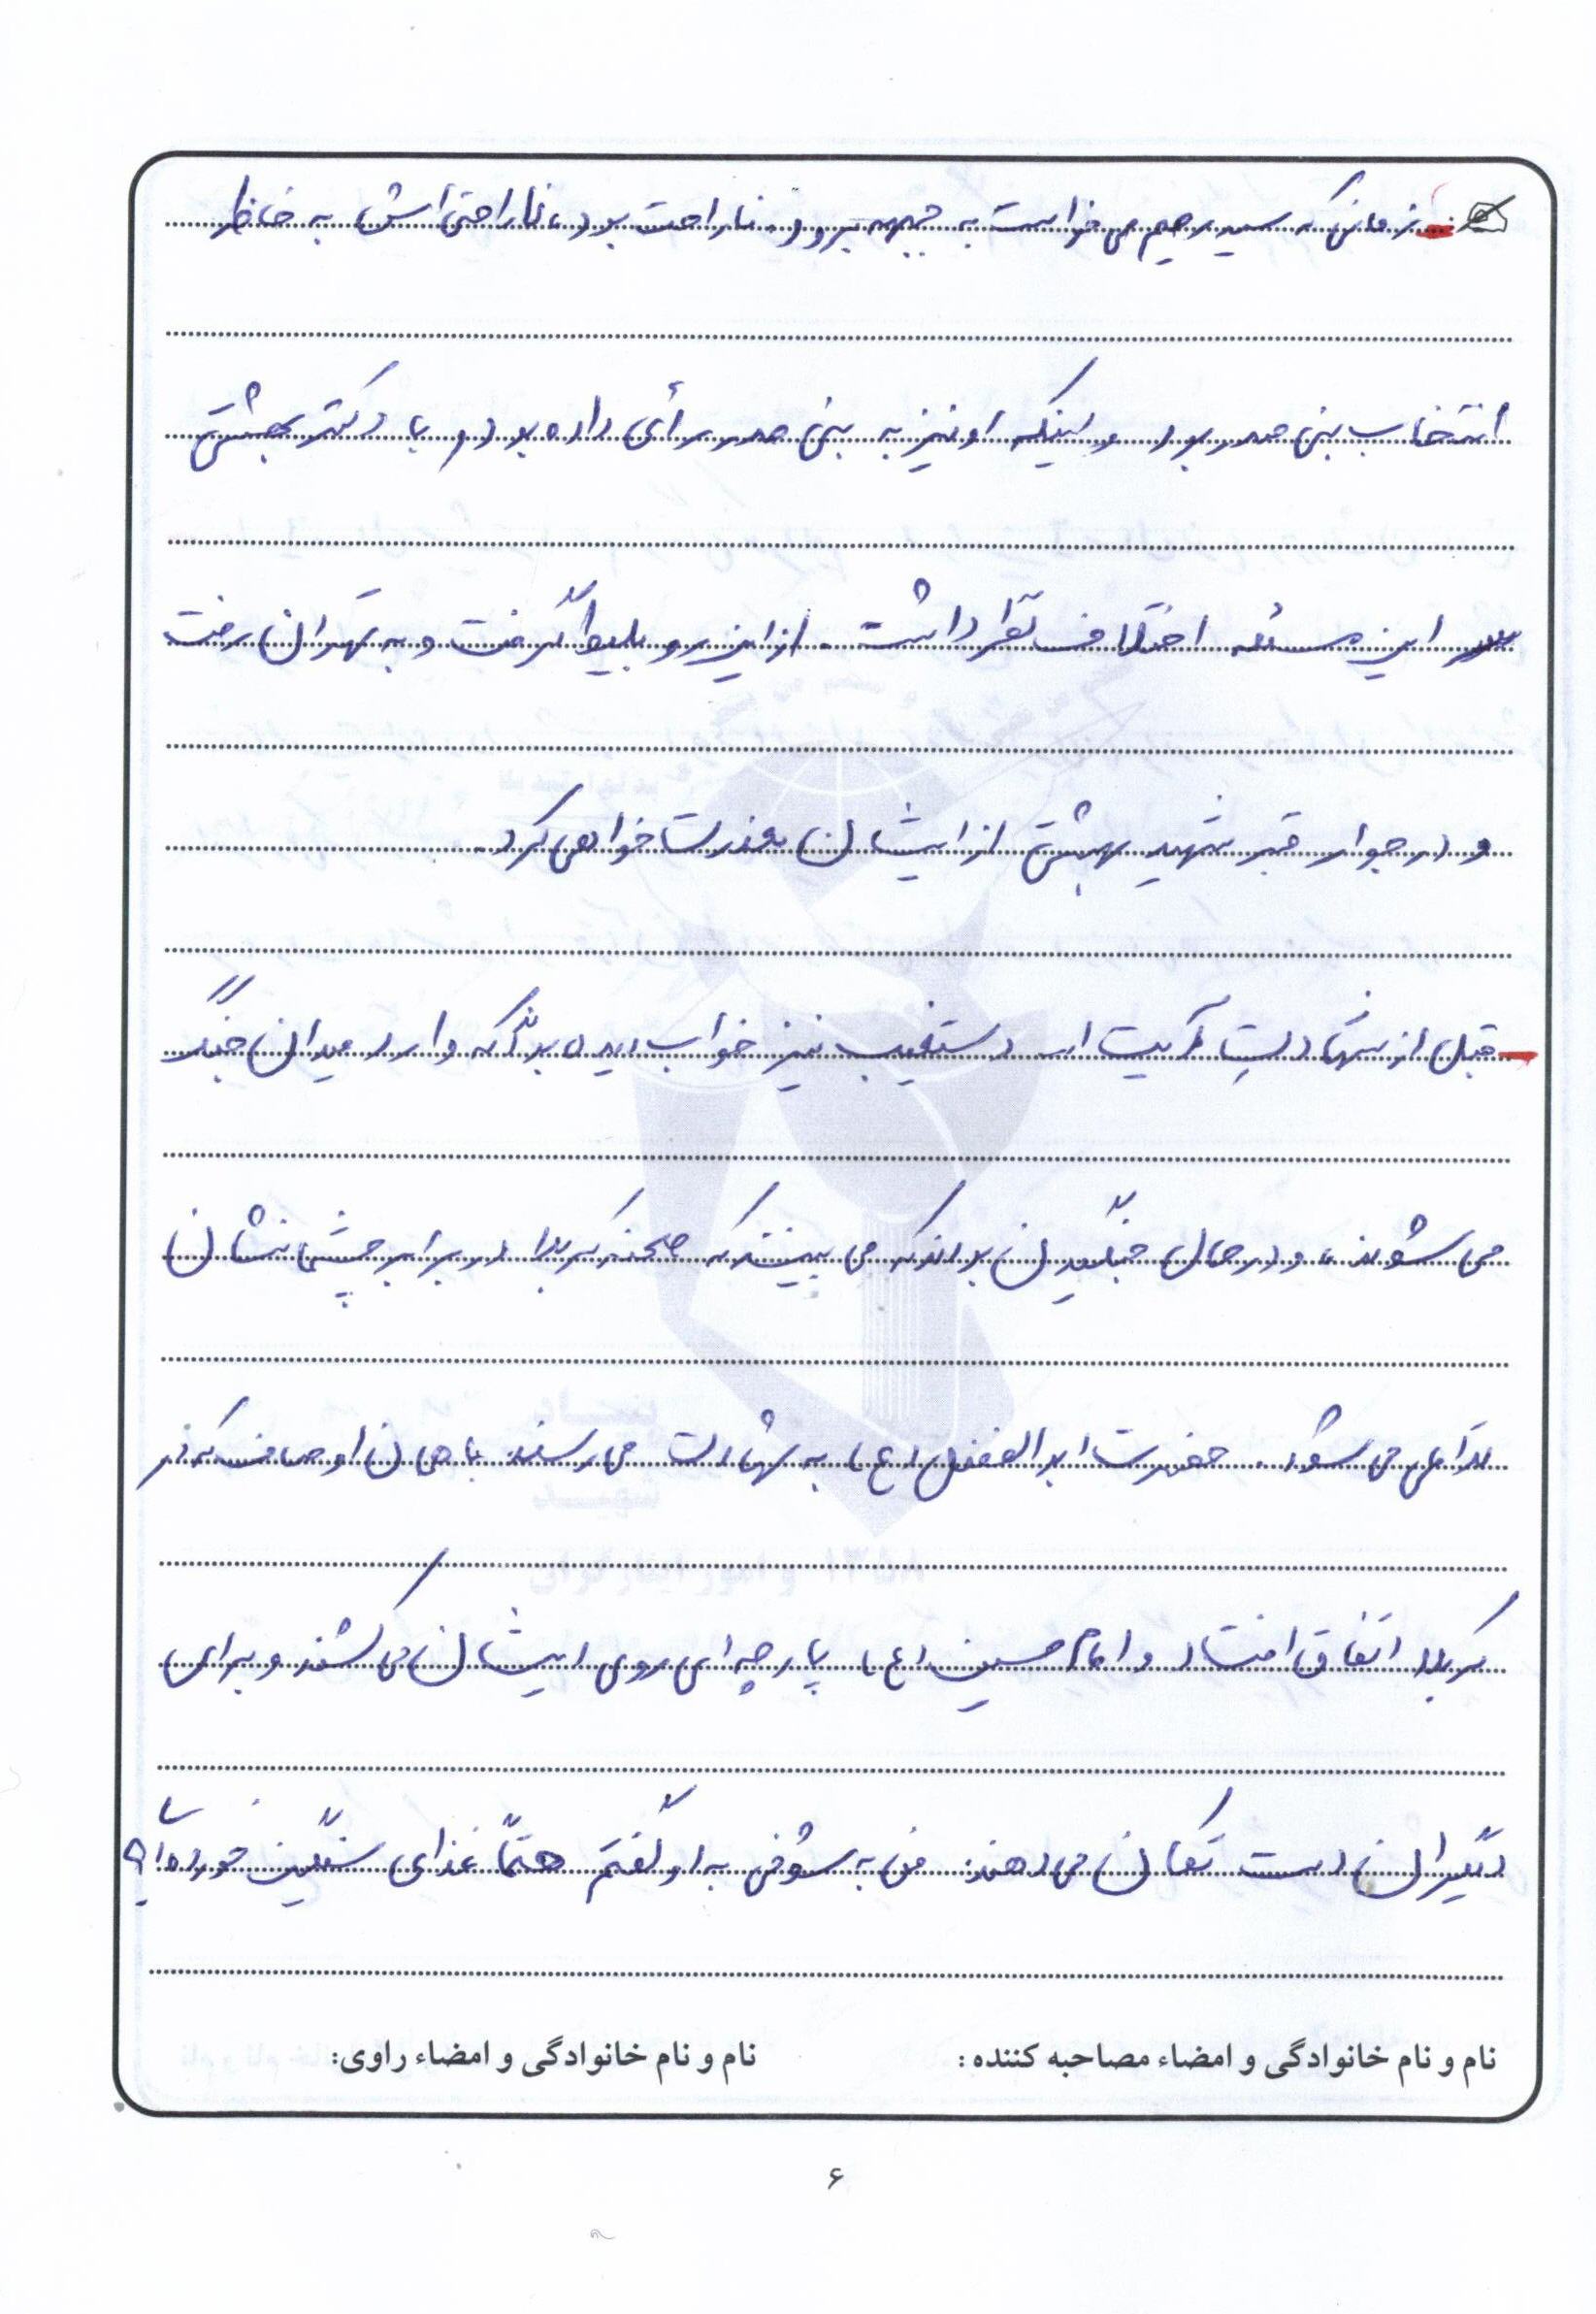 زمانی که سید رحیم می خواست به جبهه برود، ناراحت بود، ناراحتی اش به خاطر
انتخاب بنی صدر بود و اینکه او نیز به بنی صدر رأی داده بود و با دکتر بهشتی
سر این مسئله اختلاف نظر داشت. از این رو بلیط گرفت و به تهران رفت
و در جوار قبر شهید بهشتی از ایشان معذرت خواهی کرد.
قبل از شهادتِ آیت ا... دستغیب نیز خواب دیده بود که وارد میدان جنگ
می شوند، و در حال جنگیدن بودند که می بینند که صحنه کربلا در برابر چشمانشان
تداعی می شود. حضرت ابوالفضل (ع) به شهادت می رسند با همان اوصاف که در
کربلا اتفاق افتاد و امام حسین (ع) پارچه ای روی ایشان می کشند و برای
دیگران دست تکان می دهند. من به شوخی به او گفتم حتماً غذای سنگین خورده ای؟
نام و نام خانوادگی و امضاء مصاحبه کننده: نام و نام خانوادگی و امضاء راوی:
۶